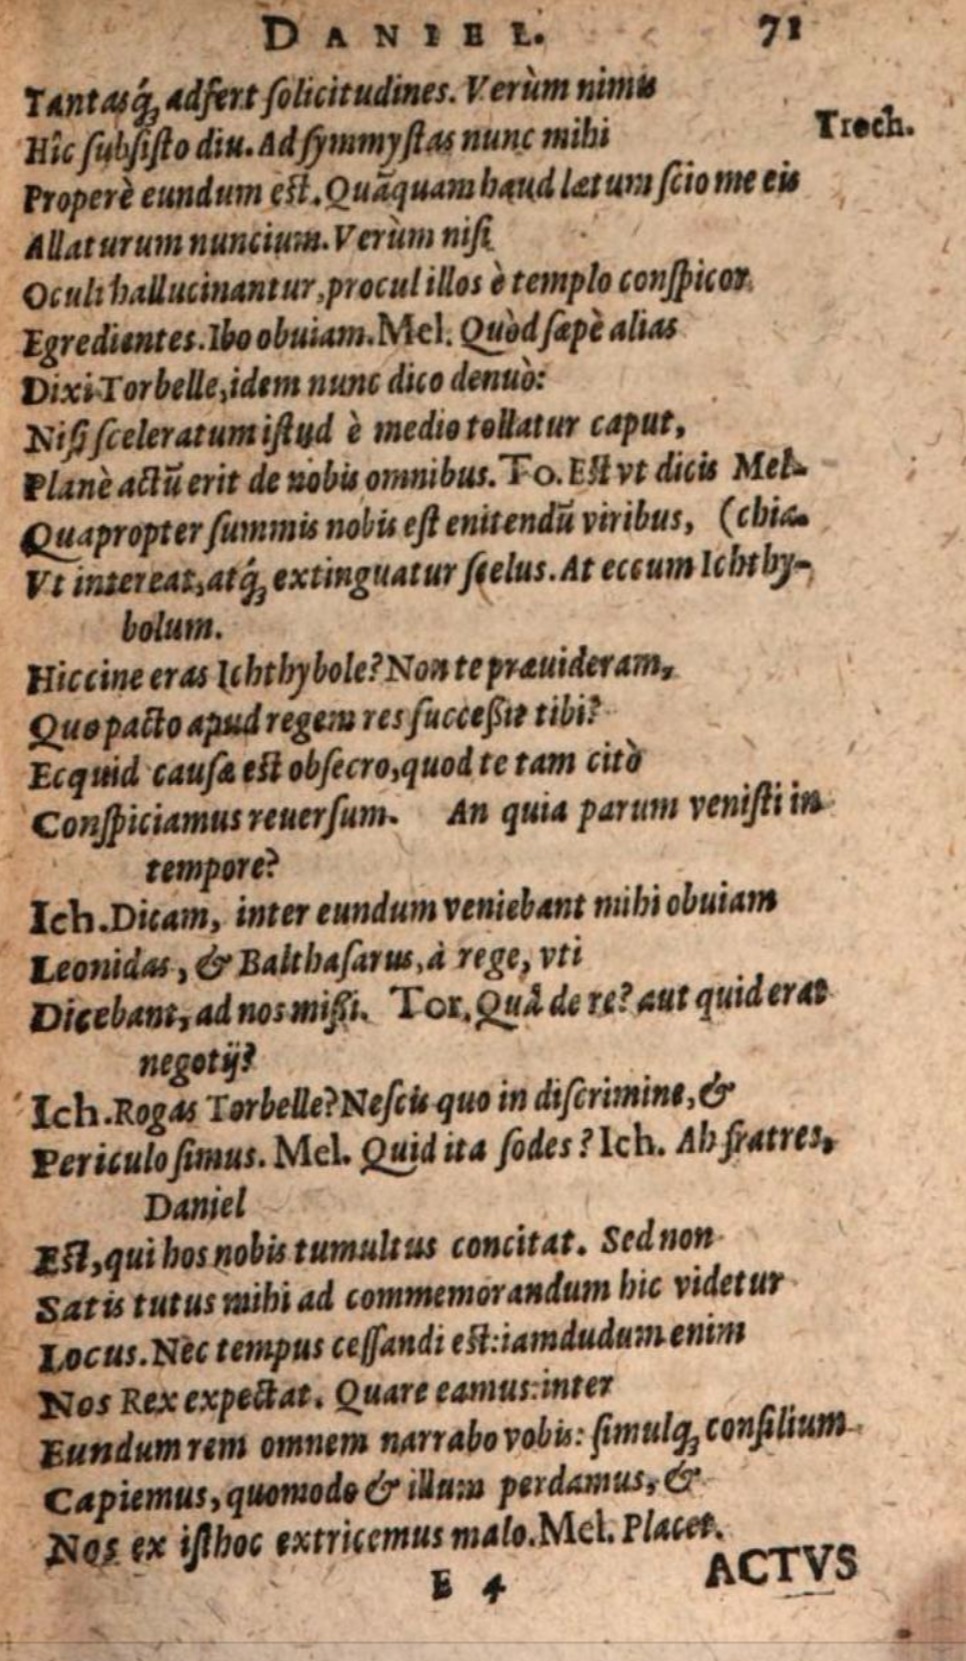 DANIEL. 71
Tantasq́; adfert ſolicitudines. Verùm nimis
Hîc ſubſiſto diu. Ad ſymmyſtas nunc mihi Troch.
Properè eundum eſt. Quãquam haud lætum ſcio me eis
Allaturum nuncium. Verùm niſi
Oculi hallucinantur, procul illos è templo conſpicor
Egredientes. Ibo obuiam. Mel. Quòd ſæpè alias
Dixi Torbelle, idem nunc dico denuò:
Niſi ſceleratum iſtud è medio tollatur caput,
Planè actũ erit de nobis omnibus. To. Eſt vt dicis Mel-
Quapropter ſummis nobis eſt enitendũ viribus, (chia.
Vt intereat, atq́; extinguatur ſcelus. At eccum Ichthy-
bolum.
Hiccine eras Ichthybole? Non te præuideram,
Quo pacto apud regem res ſucceßit tibi?
Ecquid cauſæ eſt obſecro, quod te tam citò
Conſpiciamus reuerſum. An quia parum veniſti in
tempore?
Ich. Dicam, inter eundum veniebant mihi obuiam
Leonidas, & Balthaſarus, à rege, vti
Dicebant, ad nos mißi. Tor. Quâ de re? aut quid erat
negotij?
Ich. Rogas Torbelle? Neſcis quo in diſcrimine, &
Periculo ſimus. Mel. Quid ita ſodes? Ich. Ah fratres,
Daniel
Eſt, qui hos nobis tumultus concitat. Sed non
Satis tutus mihi ad commemorandum hic videtur
Locus. Nec tempus ceſſandi eſt: iamdudum enim
Nos Rex expectat. Quare eamus: inter
Eundum rem omnem narrabo vobis: ſimulq; conſilium
Capiemus, quomodo & illum perdamus, &
Nos ex iſthoc extricemus malo. Mel. Placet.
E 4 ACTVS